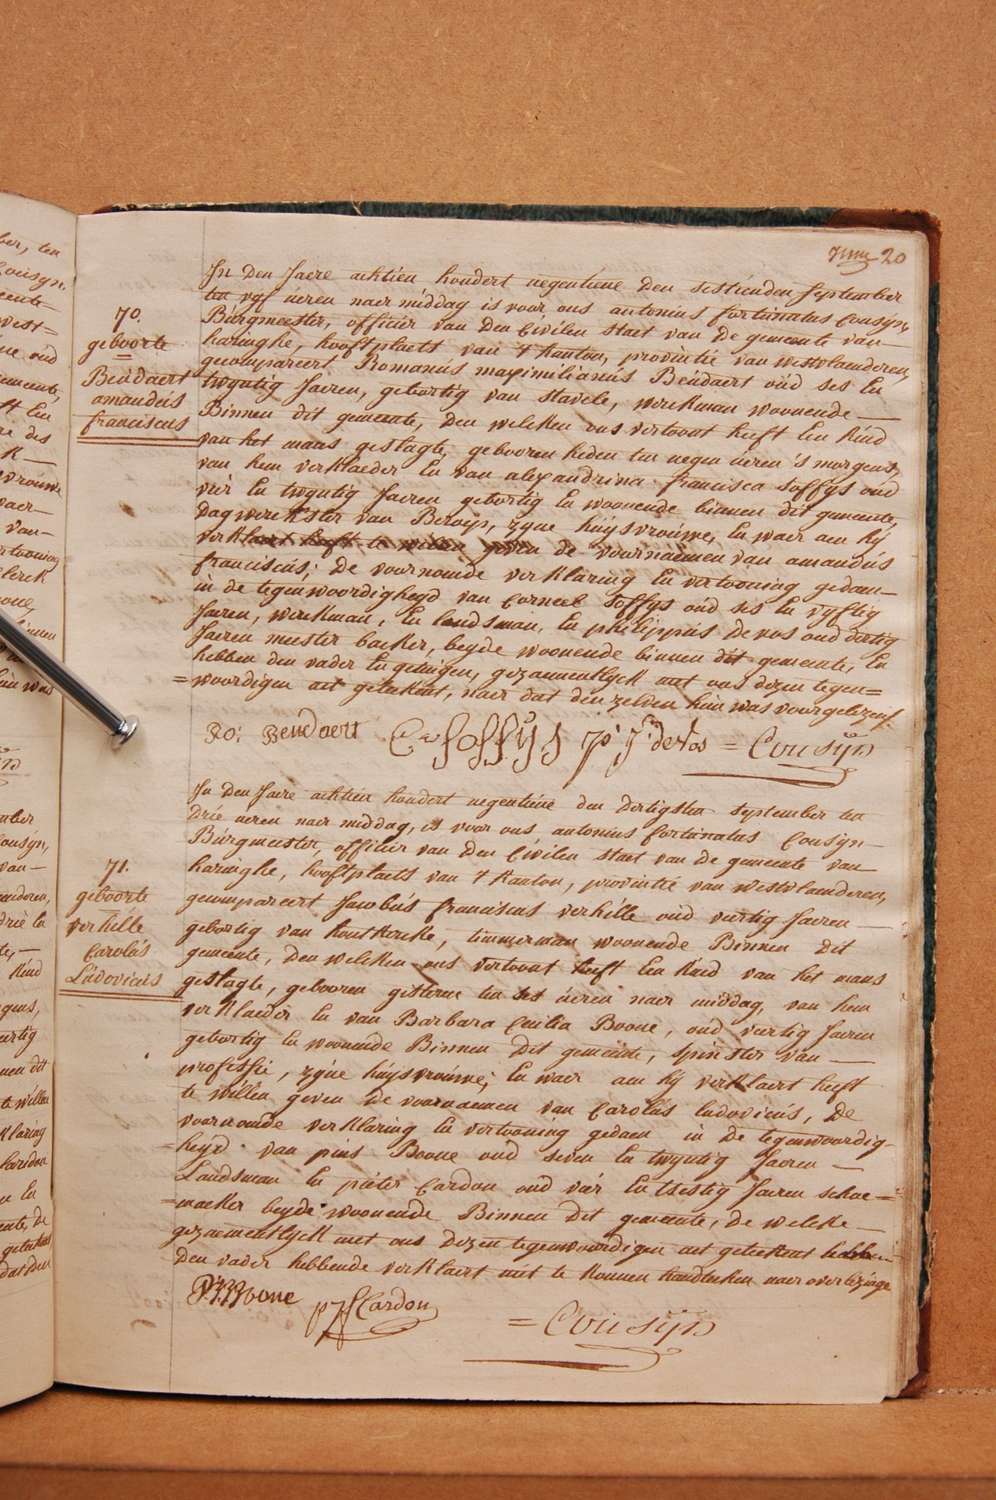 20
70.
geboorte
Beudaert
amandus
franciscus
In den Jaere achtien hondert negentiene den sestienden September
ten vyf ueren naer middag is voor ons antonius fortunatus Cousyn,
Burgmeester, officier van den Civilen staet van de gemeente van
haringhe, hooftplaets van 't Kanton, provintie van westvlaenderen,
gecompareert Romanus maximilianus Beudaert oud ses en
twyntig Jaeren, gebortig van Stavele, werkman woonende
Binnen dit gemeente, den welcken ons vertoont heeft Een Kind
van het mans geslagte, gebooren heden ten negen ueren 's morgens,
van hem verklaeder En van alexandrina francisca Soffys oud
vier En twyntig Jaeren gebortig En woonende binnen dit gemeente,
Dagwerkster van Beroep, zyne huysvrouwe, En waer aen hy
verklaert heeft te willen geven de voornaemen van amandus
franciscus; de voornoemde verklaring En vertooning gedaen
in de tegenwoordigheyd van Corneel Soffys oud ses En vyftig
Jaeren, werkman, En landsman, En philippus de vos oud dertig
Jaeren meester backer, beyde woonende binnen dit gemeente, En
hebben den vader En getuigen, gezamentlyck met ons dezen tegen=
=woordigen act geteekent, naer dat den zelven hun was voorgelezen
Ro: Beudaert C= Soffys po: J: de Vos = Cousyn
71.
geboorte
verhille
Carolus
Ludovicus
In den Jaere achtien hondert negentiene den dertigsten September ten
drie ueren naer middag, is voor ons antonius fortunatus Cousyn
Burgmeester, officier van den Civilen staet van de gemeente van
haringhe, hooftplaets van 't Kanton, provintie van westvlaenderen,
gecompareert Jacobus franciscus verhille oud veertig Jaeren
gebortig van houtkerke, timmerman woonende Binnen dit
gemeente, den welcken ons vertoont heeft Een Kind van het mans
geslagte, gebooren gisteren ten ses ueren naer middag, van hem
verklaeder En van Barbara Cecilia Boone, oud veertig Jaeren
gebortig En woonende Binnen dit gemeente, Spinster van
professie, zyne huysvrouwe; En waer aen hy verklaert heeft
te willen geven de voornaemen van Carolus ludovicus, De
voornoemde verklaring En vertooning gedaen in de tegenwoordig
=heyd van pius Boone oud seven En twyntig Jaeren
Landsman En pieter Cardon oud vier En tsestig Jaeren schoe=
=maeker beyde woonende Binnen dit gemeente, de welcke
gezamentlyck met ons dezen tegenwoordigen act geteekent hebben
Den vader hebbende verklaert niet te konnen handteken naer overlezinge
P: Boone pJ Cardon = Cousyn